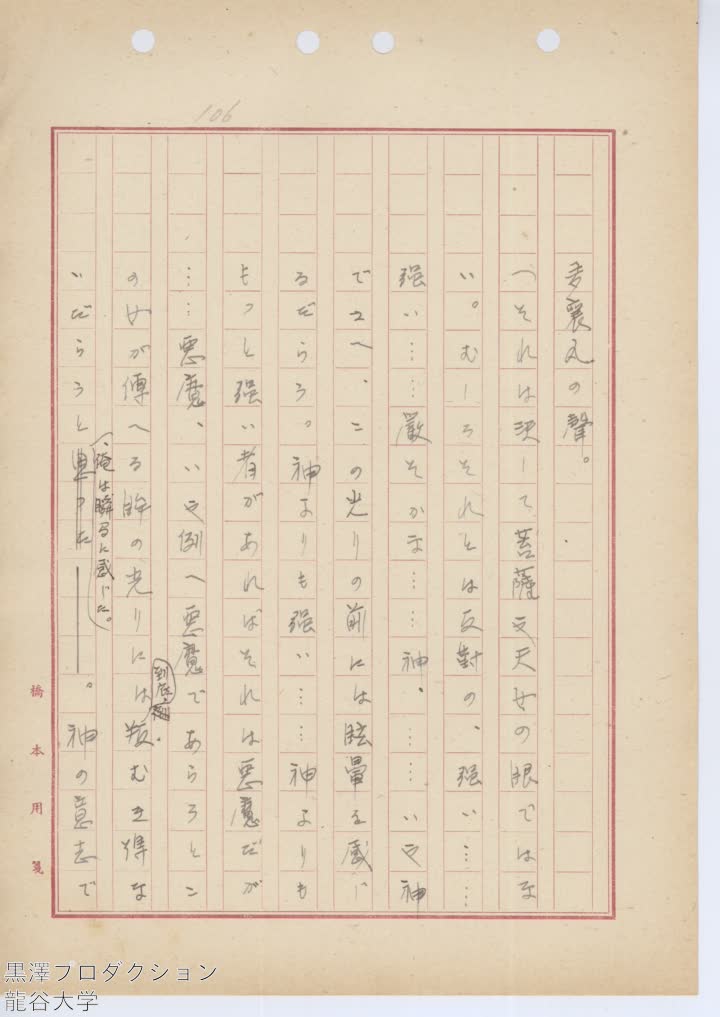 106
多襄丸の聲。
「それは決して菩薩や天女の眼ではな
い。むしろそれとは反對の、强い……
强い……嚴そかな……神、……いや神
でさへ、この光りの前には眩暈を感じ
るだらう。神よりも强い……神よりも
もつと强い者があればそれは惡魔だが
……惡魔、いや例へ惡魔であらうとこ
の女が傳へる眸の光りには到底叛むき得な
いだらうと俺は瞬る に感じた。
思つた――。神の意志で
橋本用箋
黒澤プロダクション
龍谷大学